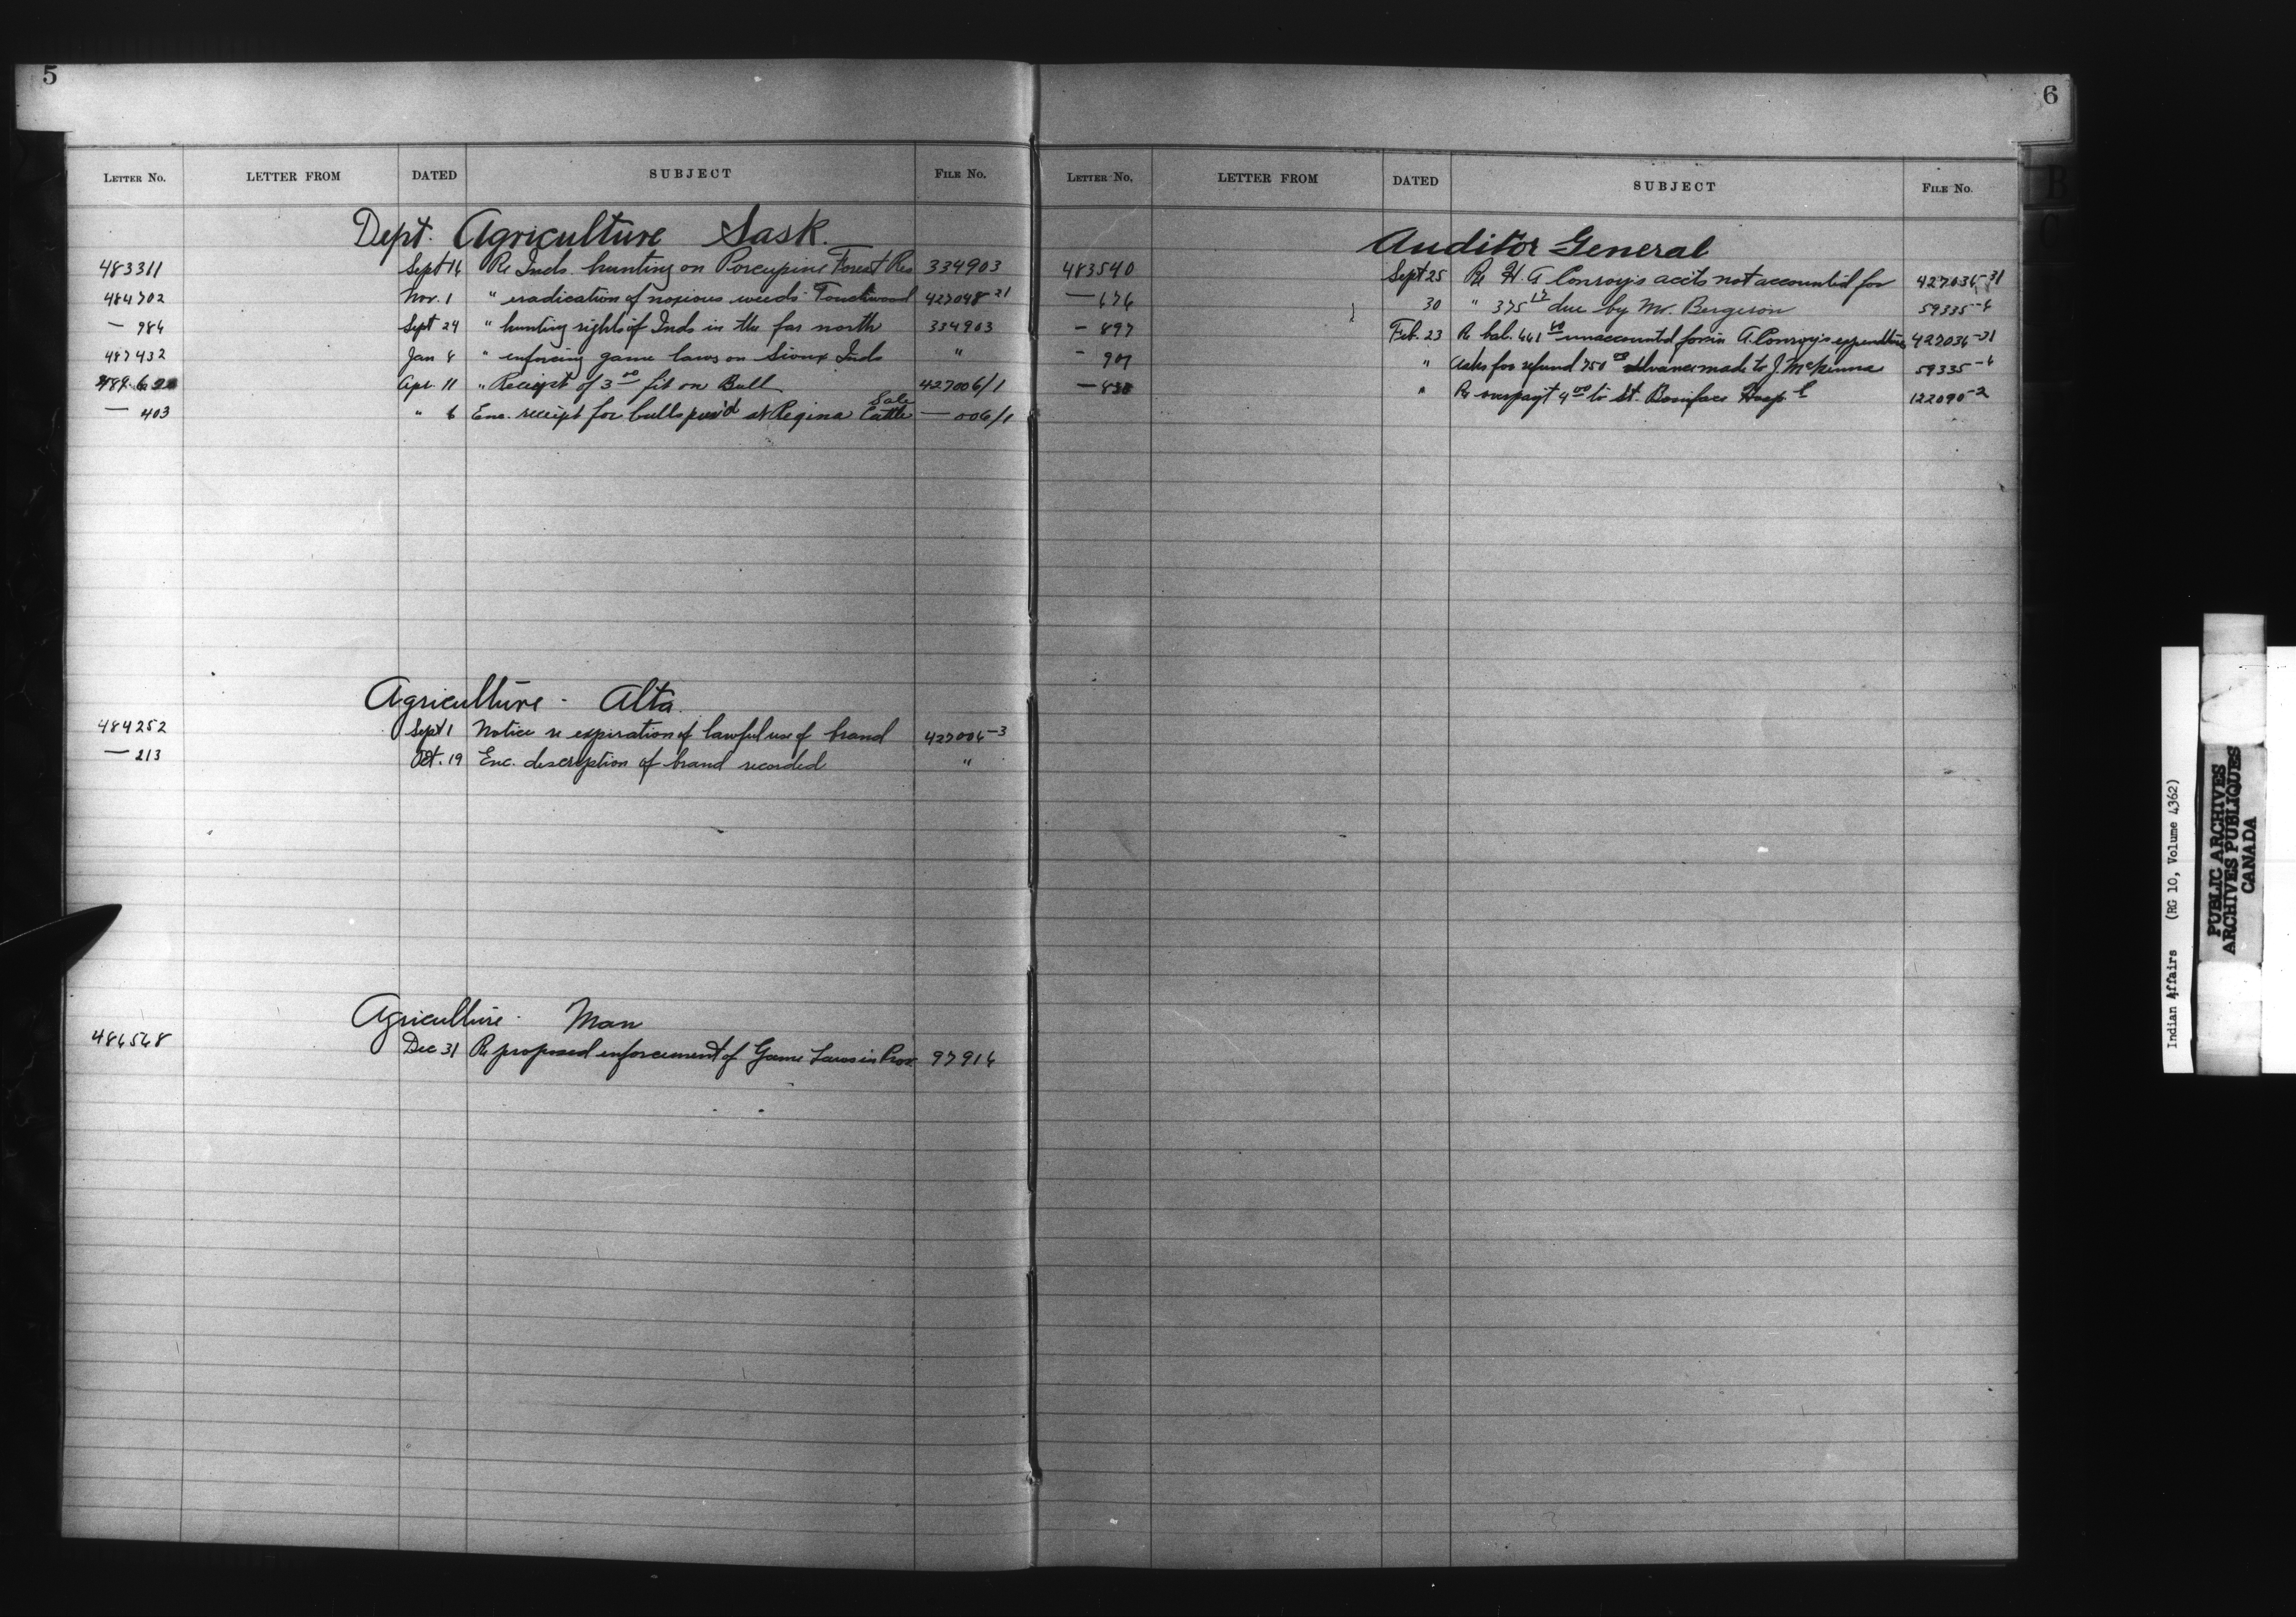 5
LETTER NO. LETTER FROM DATED SUBJECT FILE NO.
Dept. Agriculture Sask.
483311 Sept 16 Re Inds. hunting on Porcupine Forest Res 334903
484702 Nov. 1 " eradication of noxious weeds - Touchwood 427048-21
— 984 Sept 24 " hunting rights of Inds in the far north 334903
487432 Jan 8 " enforcing game laws on Sioux Inds "
Apr. 11 " Receipt of 3 00 on Bull 427006/1
— 403 " 6 Enc. receipt for bulls pur'd at Regina Cattle Sale — 006/1
Agriculture - Alta.
484252 Sept 1 Notice re expiration of lawful use of brand 427006-3
— 213 Oct. 19 Enc. description of brand recorded "
Agriculture - Man
486548 Dec 31 Re proposed enforcement of Game Laws in Prov. 97916
6
LETTER NO. LETTER FROM DATED SUBJECT FILE NO.
Auditor General
483540 Sept 25 Re H. A Conroy's acc'ts not accounted for 427036-31
— 676 30 " 375 17 due by Mr. Bergeron 59335-6
— 897 Feb. 23 Re bal. 461 unaccounted for in A. Conroy's expenditure 427036-31
- 907 " Asks for refund 750 00 advance made to J. McKenna 59335-6
— 830 " Re overpay't 4 00 to St. Boniface Hosp'l 122090-2
Indian Affairs (RG 10, Volume 4362)
PUBLIC ARCHIVES
ARCHIVES PUBLIQUES
CANADA